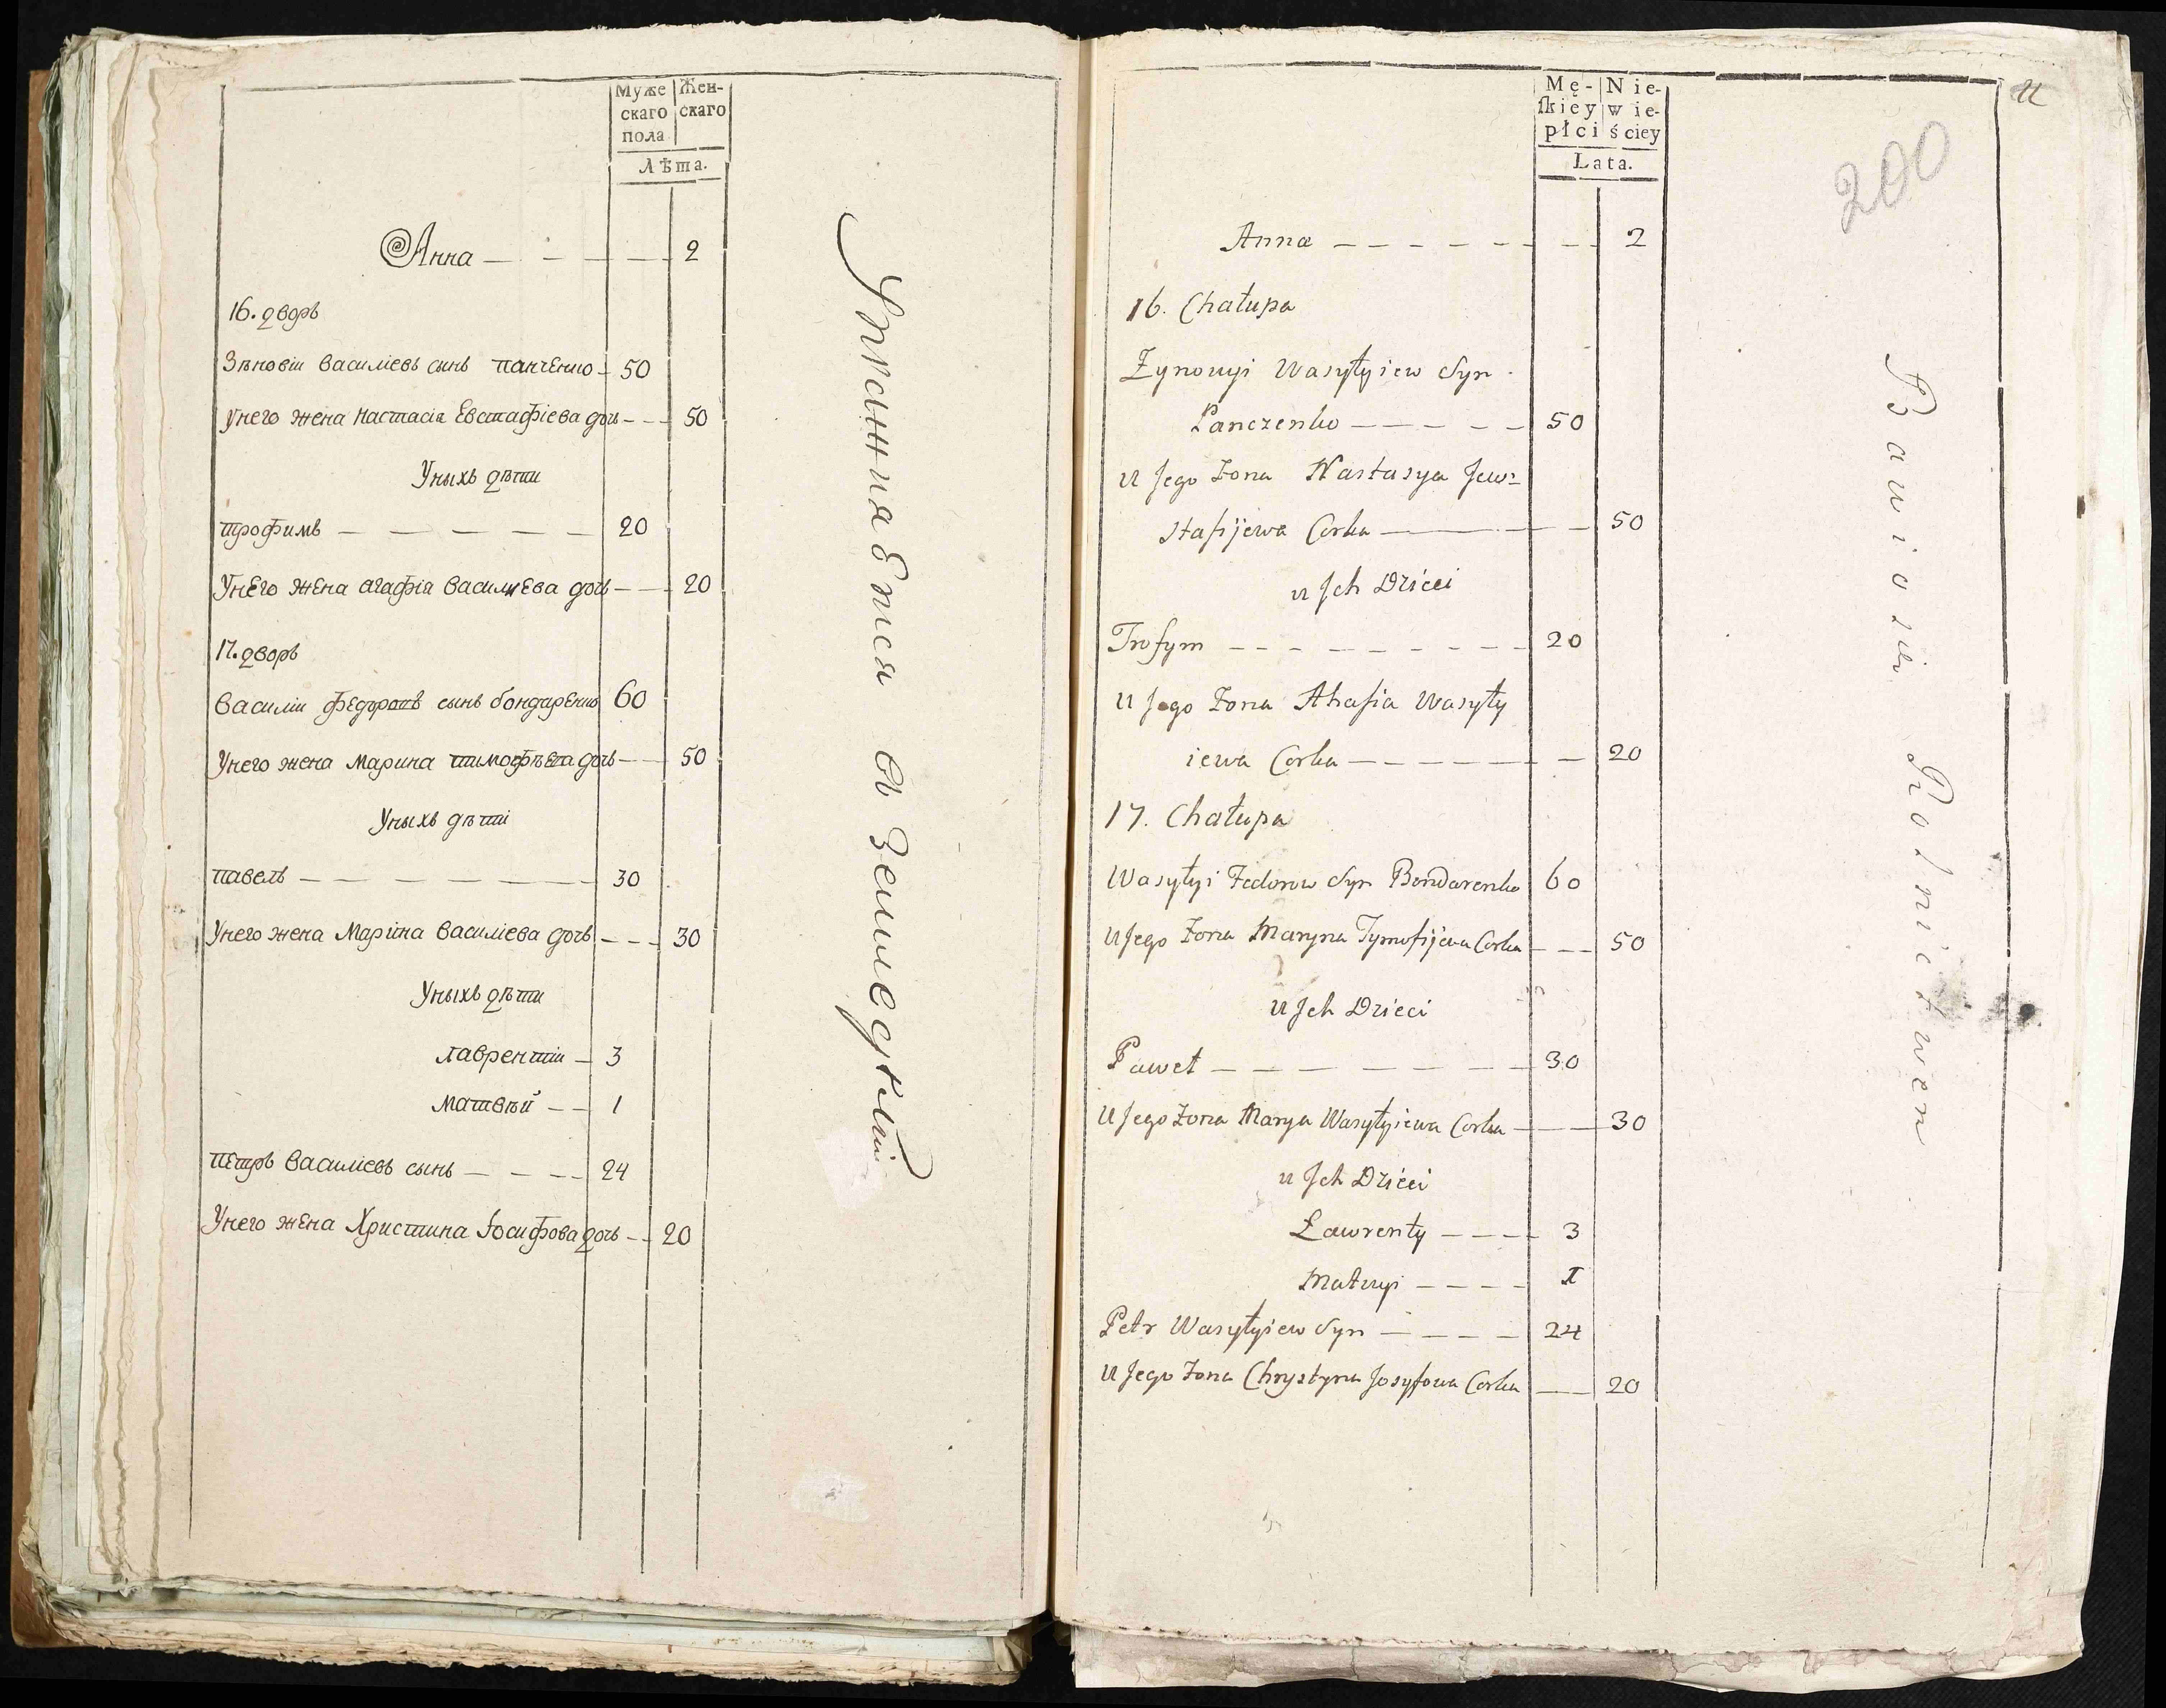 Муже Жен-
скаго скаго
пола
Лѣта.
Анна — — — — 2
16. дворъ
Зѣновіи Василіевъ сынъ Панченко — 50
Унего жена Настасіа Евстафіева дочь — — 50
Уныхъ дѣти
Трофимъ — — — — — 20
Унего жена Агафіа Василиева дочь — — 20
17. дворъ
Василіи Федоровъ сынъ Бондаренко 60
Унего жена Марина Тимофѣева дочь — — 50
Уныхъ дѣти
Павелъ — — — — — 30
Унего жена Марина Василіева дочь — — — 30
Уныхъ дѣти
Лаврентіи — 3
Матвѣй — — 1
Петръ Василіевъ сынъ — — — — 24
Унего жена Христина Іосифова дочь — — 20
Упражняются въ Земледѣліи
Mę- Nie-
ſkiey wie-
płci ściey
Lata.
200
Anna — — — — — — — 2
16. Chałupa
Zynowyi Wasyłyiew Syn
Panczenko — — — — — 50
u Jego Żona Nastasya Jew=
stafijewa Corka — — — 50
u Jch Dzieci
Trofym — — — — — — — — 20
u Jego Żona Ahafia Wasyły
iewa Corka — — — — — — 20
17. Chałupa
Wasyłyi Fedorow Syn Bondarenko 60
u Jego Żona Maryna Tymofijewa Corka — — 50
u Jch Dzieci
Paweł — — — — — — — 30
u Jego Żona Marya Wasyłyiewa Corka — — 30
u Jch Dzieci
Ławrenty — — — — 3
Matwyi — — — — 1
Petr Wasyłyiew Syn — — — — 24
u Jego Żona Chrystyna Josyfowa Corka — — 20
Bawio sie Rolnictwem